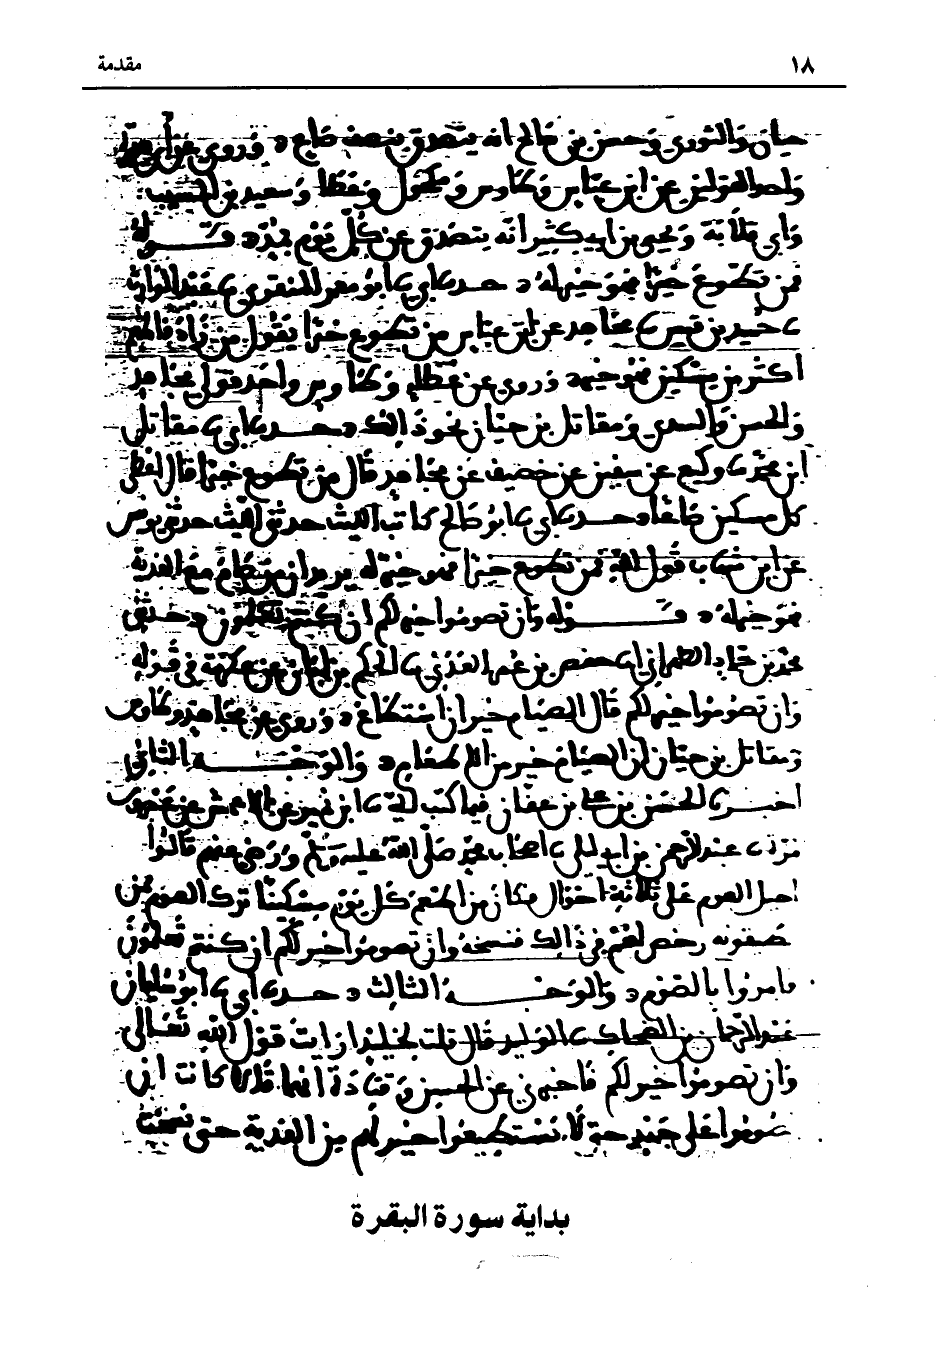 ١٨ مقدمة
حيان والثوري وحسن بن صالح انه يتصدق بنصف صاع ه وروي عن
عن ابن عباس وطاوس ومكحول وعطا وسعيد بن المسيب
وابي قلابة ويحيى بن ابي كثير انه يتصدق عن كل يوم بمد ه قوله
فمن تطوع خيرا فهو خير له ه حدثنا ابي ثنا ابو معمر المنقري ثنا عبد الوارث
ثنا حميد بن قيس ثنا مجاهد عن ابن عباس من تطوع خيرا يقول من زاد فاطعم
اكثر من مسكين فهو خير ه وروي عن عطاء وطاوس واحد قولي مجاهد
والحسن والسدي ومقاتل بن حيان نحو ذالك ه حدثنا ابي ثنا مقاتل
ابن محمد ثنا وكيع عن سفين عن خصيف عن مجاهد قال من تطوع خيرا قال اعطى
كل مسكين صاعا ه حدثنا ابي ثنا ابو صالح كاتب الليث حدثني الليث حدثني يونس
عن ابن شهاب قول الله فمن تطوع خيرا فهو خير له يريد ان من صام مع الفدية
فهو خير له ه قوله وان تصوموا خير لكم ان كنتم تعلمون ه حدثنا
محمد بن حماد الطهراني ثنا حفص بن عمر العدني ثنا الحكم بن ابان عن عكرمة في قوله
وان تصوموا خير لكم قال الصيام خير ان استطاع ه وروي عن مجاهد وطاوس
ومقاتل بن حيان ان الصيام خير من الاطعام ه والوجه الثاني
اخبرنا الحسن بن علي بن عفان فيما كتب الي ثنا ابن نمير عن الاعمش عن عمرو بن
مرة ثنا عبد الرحمن بن ابي ليلى ثنا اصحاب محمد صلى الله عليه وسلم ورضي عنهم قالوا
احيل الصوم على ثلاثة احوال فكان من اطعم كل يوم مسكينا ترك الصوم ممن
يطيقونه رخص لهم في ذالك فنسخه وان تصوموا خير لكم ان كنتم تعلمون
فامروا بالصوم ه والوجه الثالث ه حدثنا ابي ثنا ابو سليمان
عبد الرحمن بن الضحاك ثنا الوليد قال قلت لخليد ارايت قول الله تعالى
وان تصوموا خير لكم فاخبرني عن الحسن وقتادة انهما قالا كانت ان
تصوموا على جهد حتى لا تستطيعوا خير لكم من الفدية حتى نسخت
بداية سورة البقرة